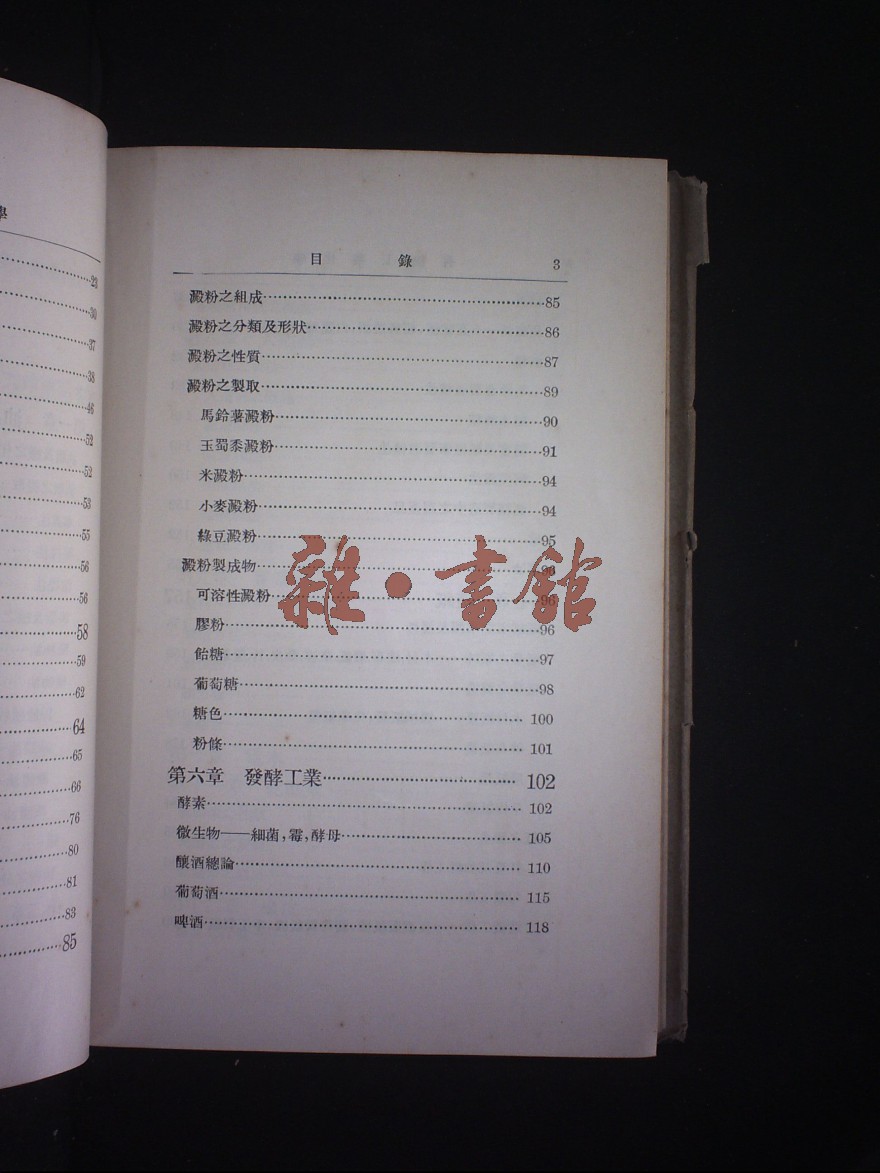 學
23
30
37
38
46
52
52
53
55
56
56
58
59
62
64
65
66
76
80
81
83
85
目 錄 3
澱粉之組成……85
澱粉之分類及形狀……86
澱粉之性質……87
澱粉之製取……89
馬鈴薯澱粉……90
玉蜀黍澱粉……91
米澱粉……94
小麥澱粉……94
綠豆澱粉……95
澱粉製成物……
可溶性澱粉……96
膠粉……96
飴糖……97
葡萄糖……98
糖色……100
粉條……101
第六章 發酵工業……102
酵素……102
微生物——細菌,霉,酵母……105
釀酒總論……110
葡萄酒……115
啤酒……118
雜·書館